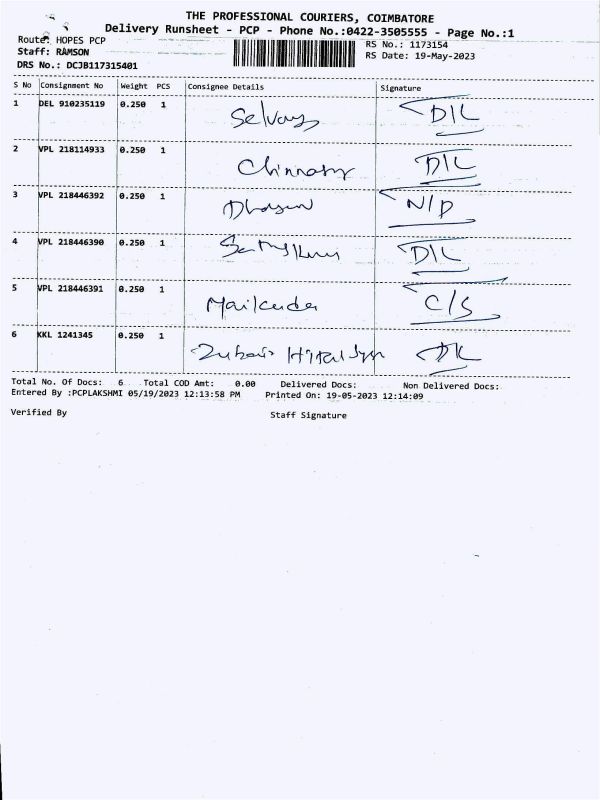 THE PROFESSIONAL COURIERS, COIMBATORE
Delivery Runsheet - PCP - Phone No.:0422-3505555 - Page No.:1
Route: HOPES PCP
RS No.: 1173154
Staff: RAMSON
RS Date: 19-May-2023
DRS No.: DCJB117315401
S No Consignment No Weight PCS Consignee Details Signature
1 DEL 910235119 0.250 1 Selvaraj D/L
2 VPL 218114933 0.250 1 D/L
3 VPL 218446392 0.250 1 N/D
4 VPL 218446390 0.250 1 D/L
5 VPL 218446391 0.250 1 C/S
6 KKL 1241345 0.250 1 D/L
Total No. Of Docs: 6 Total COD Amt: 0.00 Delivered Docs: Non Delivered Docs:
Entered By :PCPLAKSHMI 05/19/2023 12:13:58 PM Printed On: 19-05-2023 12:14:09
Verified By Staff Signature